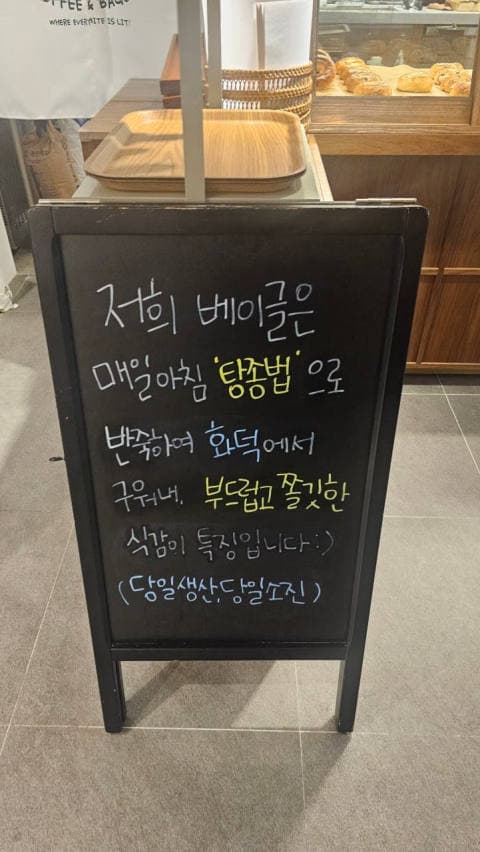 COFFEE & BAGE
WHERE EVERY BITE IS LIT!
저희 베이글은
매일아침 '탕종법'으로
반죽하여 화덕에서
구워내, 부드럽고 쫄깃한
식감이 특징입니다:)
(당일생산,당일소진)